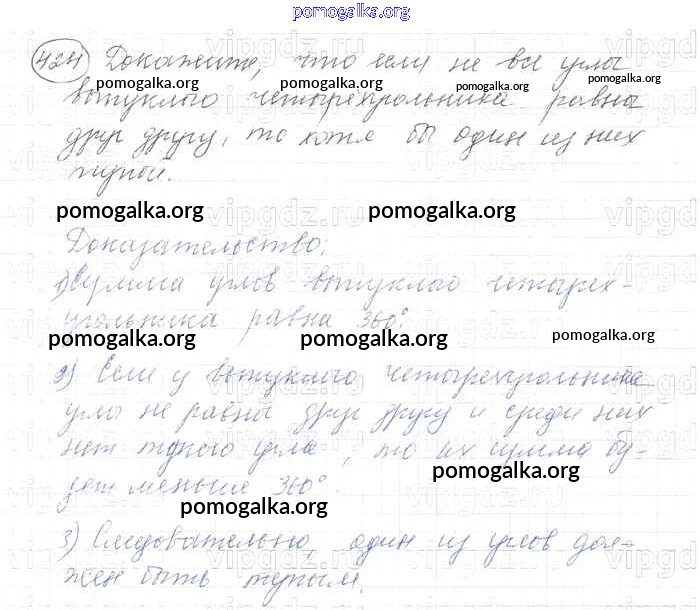 pomogalka.org
424 Докажите, что если не все углы
pomogalka.org pomogalka.org pomogalka.org pomogalka.org
выпуклого четырёхугольника равны
друг другу, то хотя бы один из них
pomogalka.org pomogalka.org
тупой.
pomogalka.org pomogalka.org
vipgdz.ru vipgdz.ru
Доказательство:
1) Сумма углов выпуклого четырех-
угольника равна 360°.
pomogalka.org pomogalka.org pomogalka.org
2) Если у выпуклого четырехугольника
углы не равны друг другу и среди них
нет тупого угла, то их сумма бу-
pomogalka.org
дет меньше 360°.
pomogalka.org
3) Следовательно, один из углов дол-
жен быть тупым.